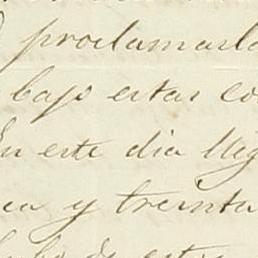 proclamarlo
bajo estas co
En este dia lleg
ea y treinta